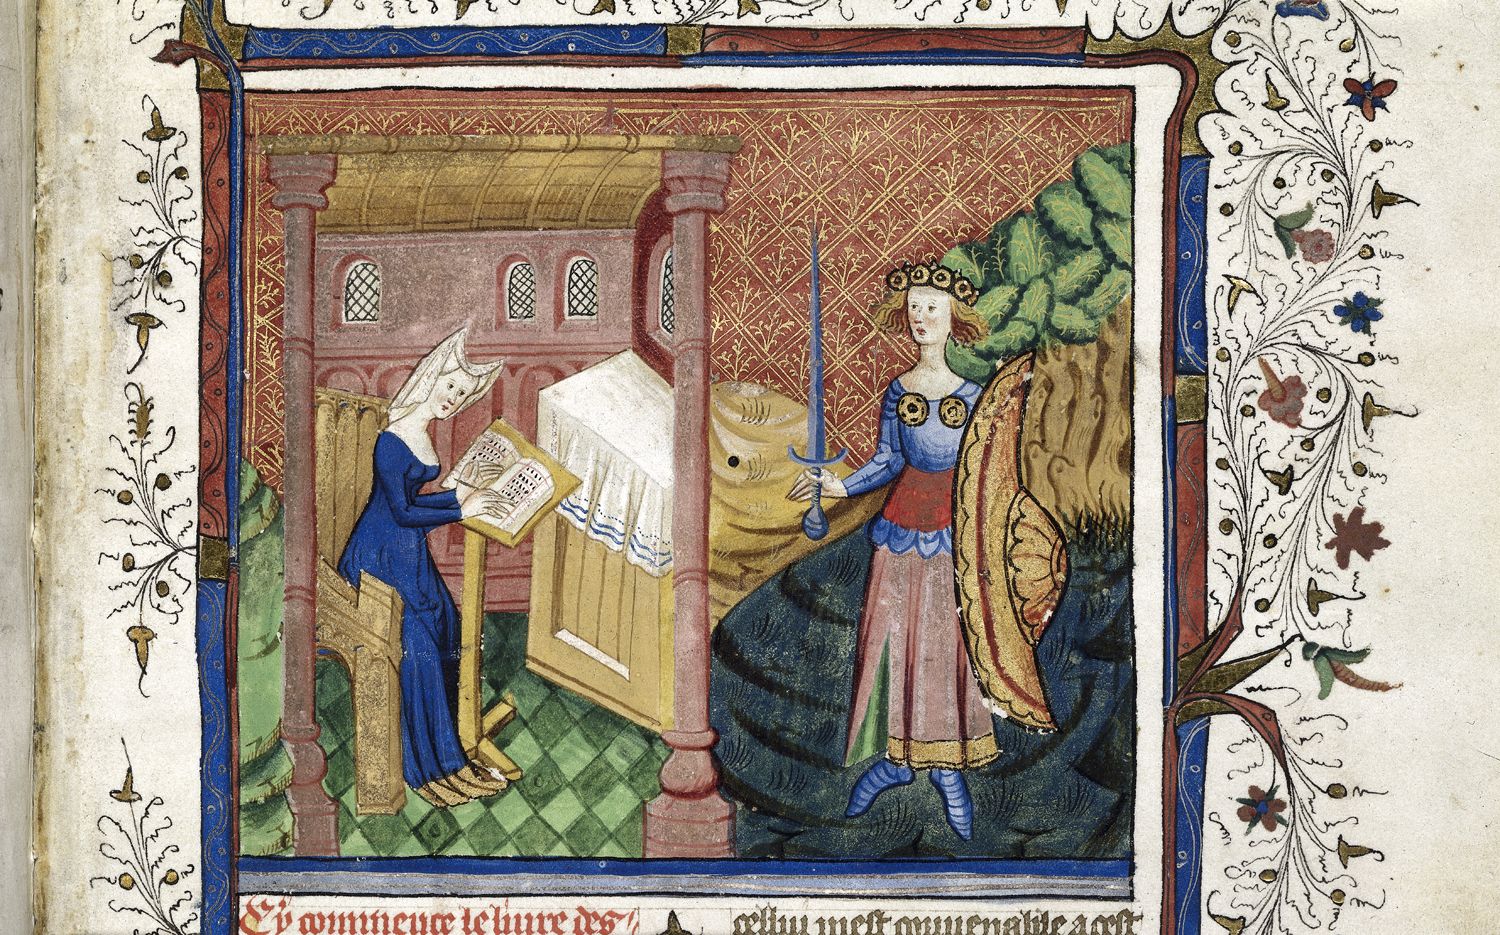 Cy commence le livre des
cestui mest convenable a cest